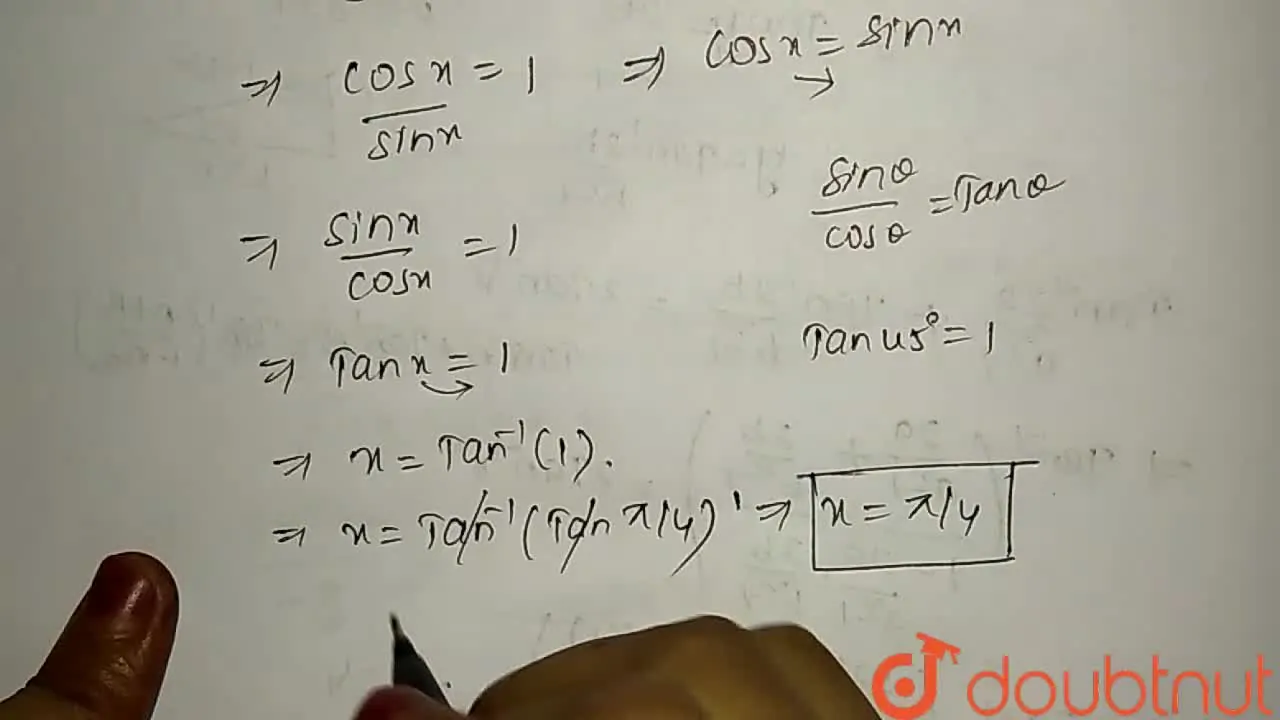 ⇒ cosx/sinx = 1 ⇒ cosx = sinx
sinθ/cosθ = Tanθ
⇒ sinx/cosx = 1
Tan45° = 1
⇒ Tanx = 1
⇒ x = Tan⁻¹(1).
⇒ x = Tan⁻¹(Tan π/4) ⇒ x = π/4
doubtnut